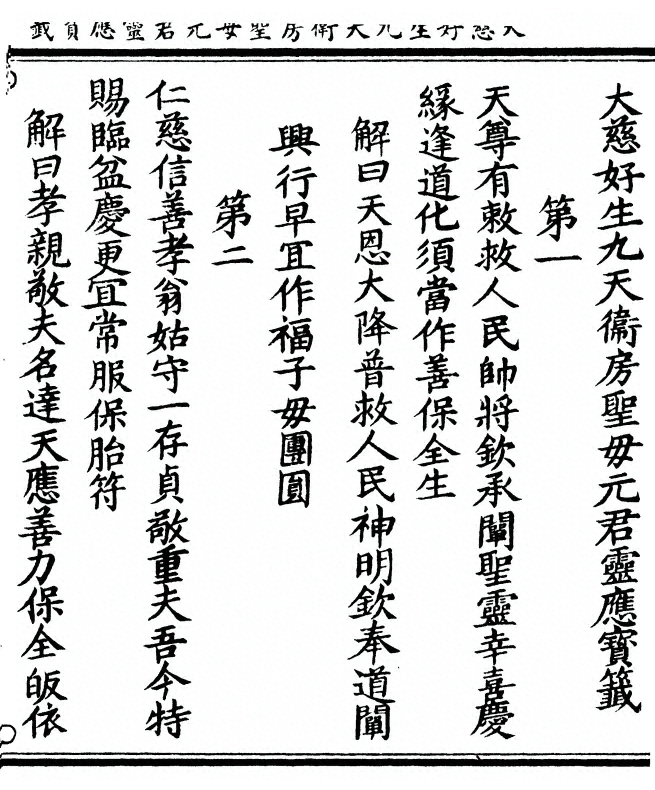 大慈好生九天衞房聖毋元君靈應寳籤
第一
天尊有敕救人民帥將欽承闡聖靈幸喜慶
緣逢道化須當作善保全生
解曰天恩大降普救人民神明欽奉道闡
興行早冝作福子毋團圓
第二
仁慈信善孝翁姑守一存貞敬重夫吾今特
賜臨盆慶更冝常服保胎符
解曰孝親敬夫名達天應善力保全皈依